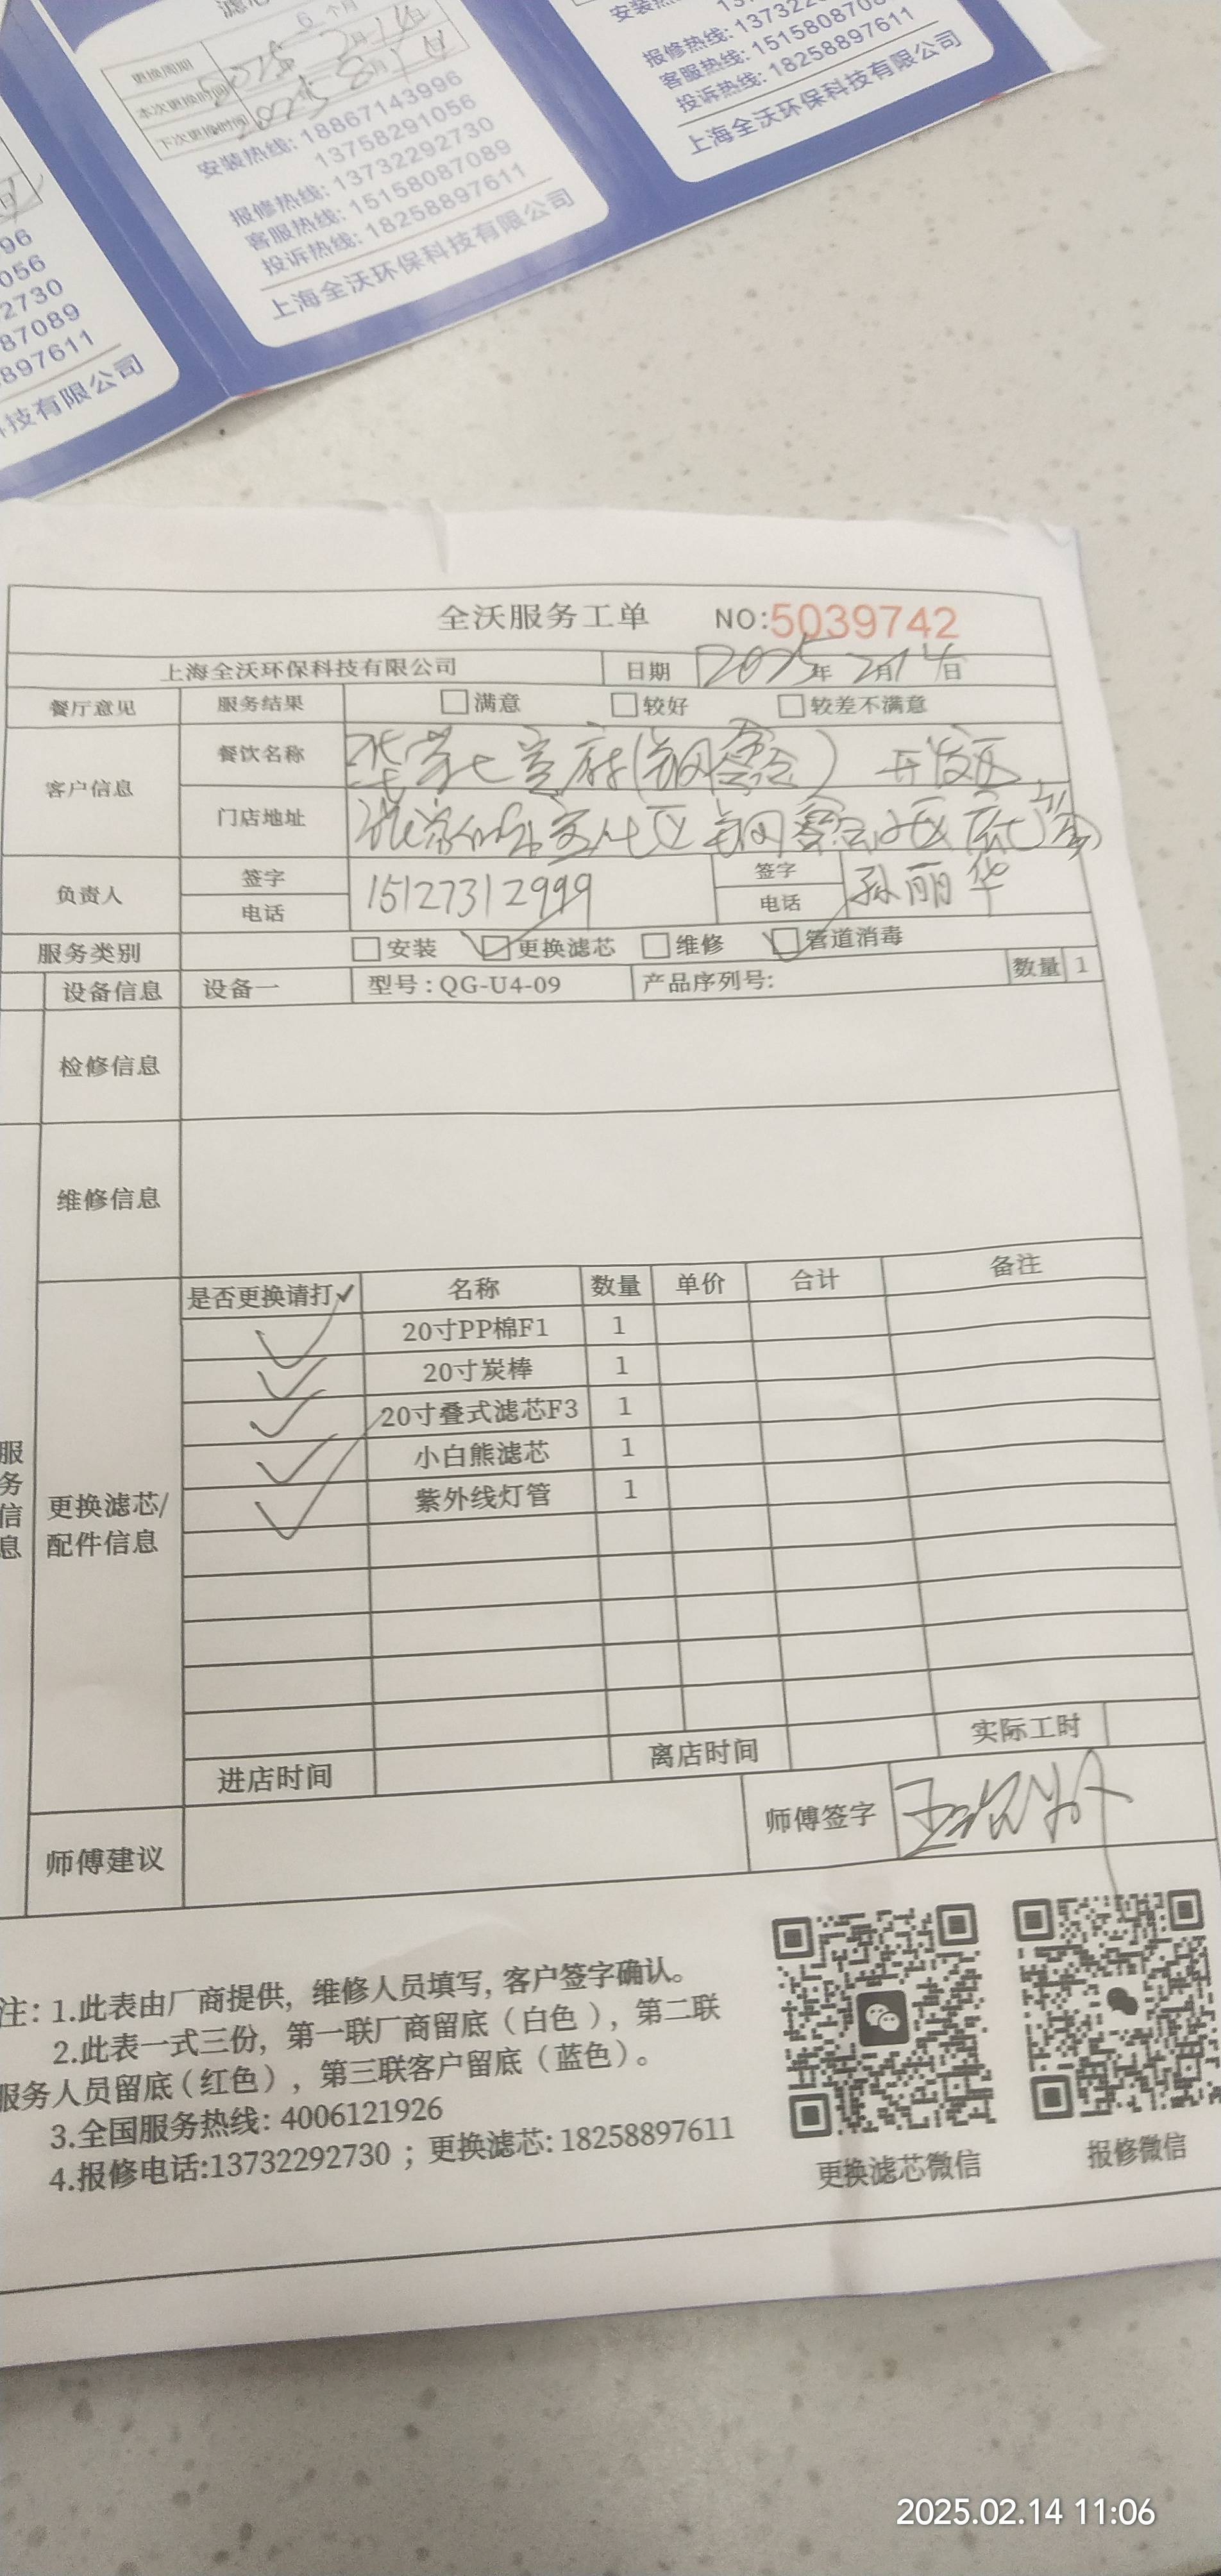 6 个月
更换周期
本次更换时间
下次更换时间
安装热线: 18867143996
13758291056
报修热线: 13732292730
客服热线: 15158087089
投诉热线: 18258897611
上海全沃环保科技有限公司
报修热线:
客服热线:
投诉热线: 18258897611
上海全沃环保科技有限公司
96
056
2730
87089
897611
技有限公司
全沃服务工单 NO:5039742
上海全沃环保科技有限公司 日期 2025年 2月14日
餐厅意见 服务结果 满意 较好 较差不满意
客户信息 餐饮名称 开发区
门店地址
负责人 签字 电话 15127312999 签字 电话 孙丽华
服务类别 安装 更换滤芯 维修 管道消毒
设备信息 设备一 型号: QG-U4-09 产品序列号: 数量 1
检修信息
维修信息
是否更换请打✓ 名称 数量 单价 合计 备注
✓ 20寸PP棉F1 1
✓ 20寸炭棒 1
✓ 20寸叠式滤芯F3 1
✓ 小白熊滤芯 1
✓ 紫外线灯管 1
服务信息
更换滤芯/
配件信息
进店时间 离店时间 实际工时
师傅建议 师傅签字
注: 1.此表由厂商提供, 维修人员填写, 客户签字确认。
2.此表一式三份, 第一联厂商留底（白色）, 第二联
服务人员留底（红色）, 第三联客户留底（蓝色）。
3.全国服务热线: 4006121926
4.报修电话:13732292730 ; 更换滤芯: 18258897611
更换滤芯微信
报修微信
2025.02.14 11:06